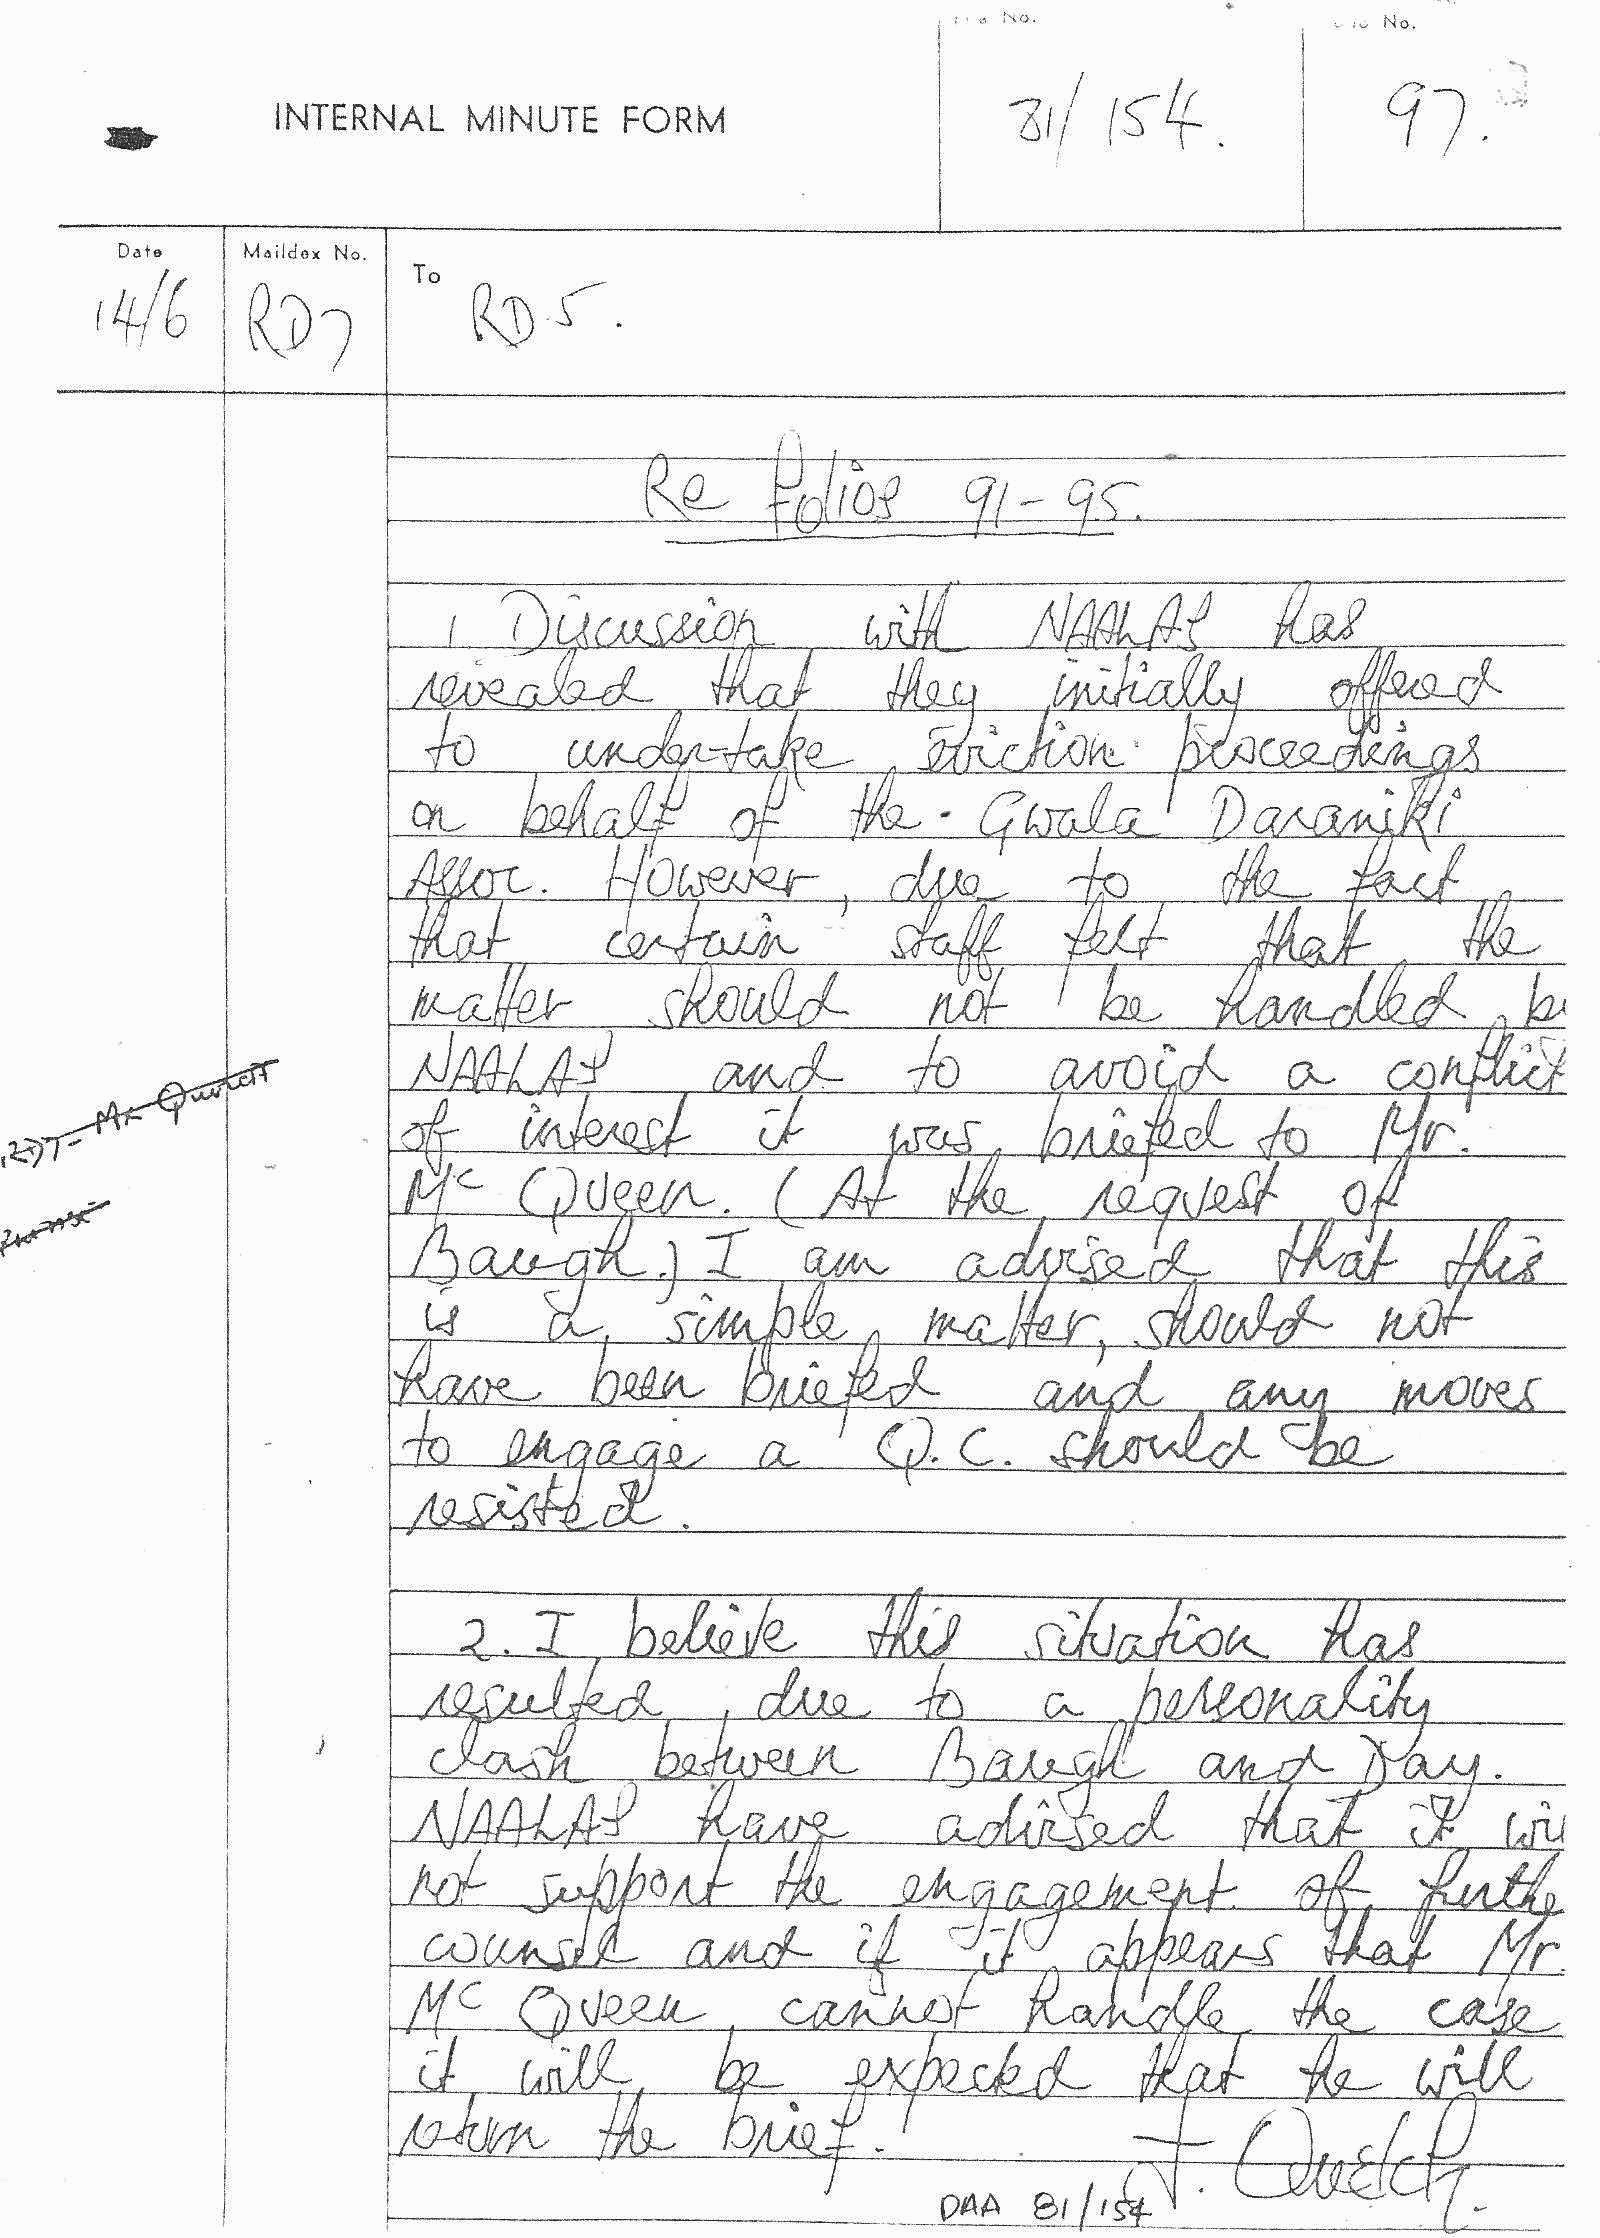 No.
No.
INTERNAL MINUTE FORM
81/154.
97.
Date
Maildex No.
To
14/6
RD7
RD.5.
Re Folios 91-95.
1 Discussion with NAALAS has
revealed that they initially offered
to under-take Eviction proceedings
on behalf of the Gwala Daraniki
Assoc. However, due to the fact
that certain staff felt that the
matter should not be handled b
NAALAS and to avoid a conflict
of interest it was briefed to Mr.
Mc Queen. (At the request of
Baugh.) I am advised that this
is a simple matter, should not
have been briefed and any moves
to engage a Q.C. should be
resisted.
RD7 - Mr
2. I believe this situation has
resulted, due to a personality
clash between Baugh and Day.
NAALAS have advised that it wi
not support the engagement of furthe
counsel and if it appears that Mr.
Mc Queen cannot handle the case
it will be expected that he will
return the brief.
J. Quelch.
DAA 81/154